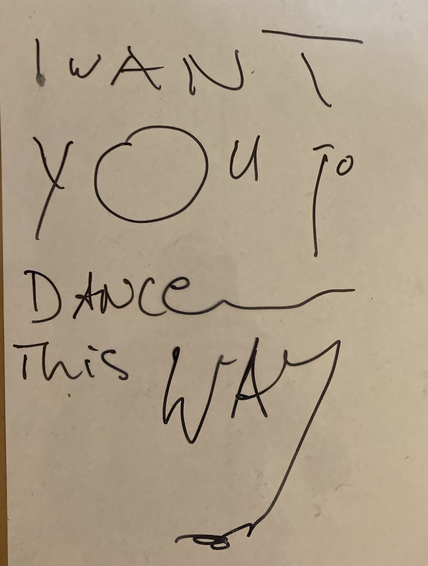 I WANT
YOU To
DANCe
This WAY